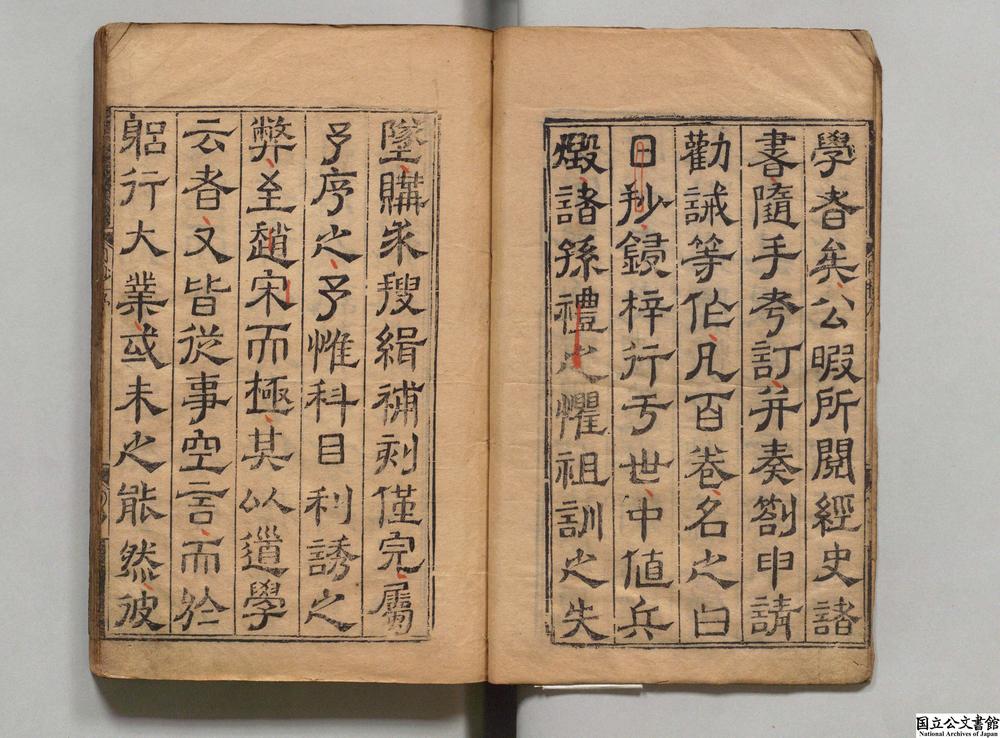 學者矣公暇所閱經史諸
書隨手考訂并奏劄申請
勸誡等作凡百卷名之曰
日抄鋟梓行于世中值兵
燬諸孫禮之懼祖訓之失
墜購求搜緝補刻僅完屬
予序之予惟科目利誘之
弊至趙宋而極其以道學
云者又皆從事空言而於
躬行大業或未之能然彼
国立公文書館
National Archives of Japan